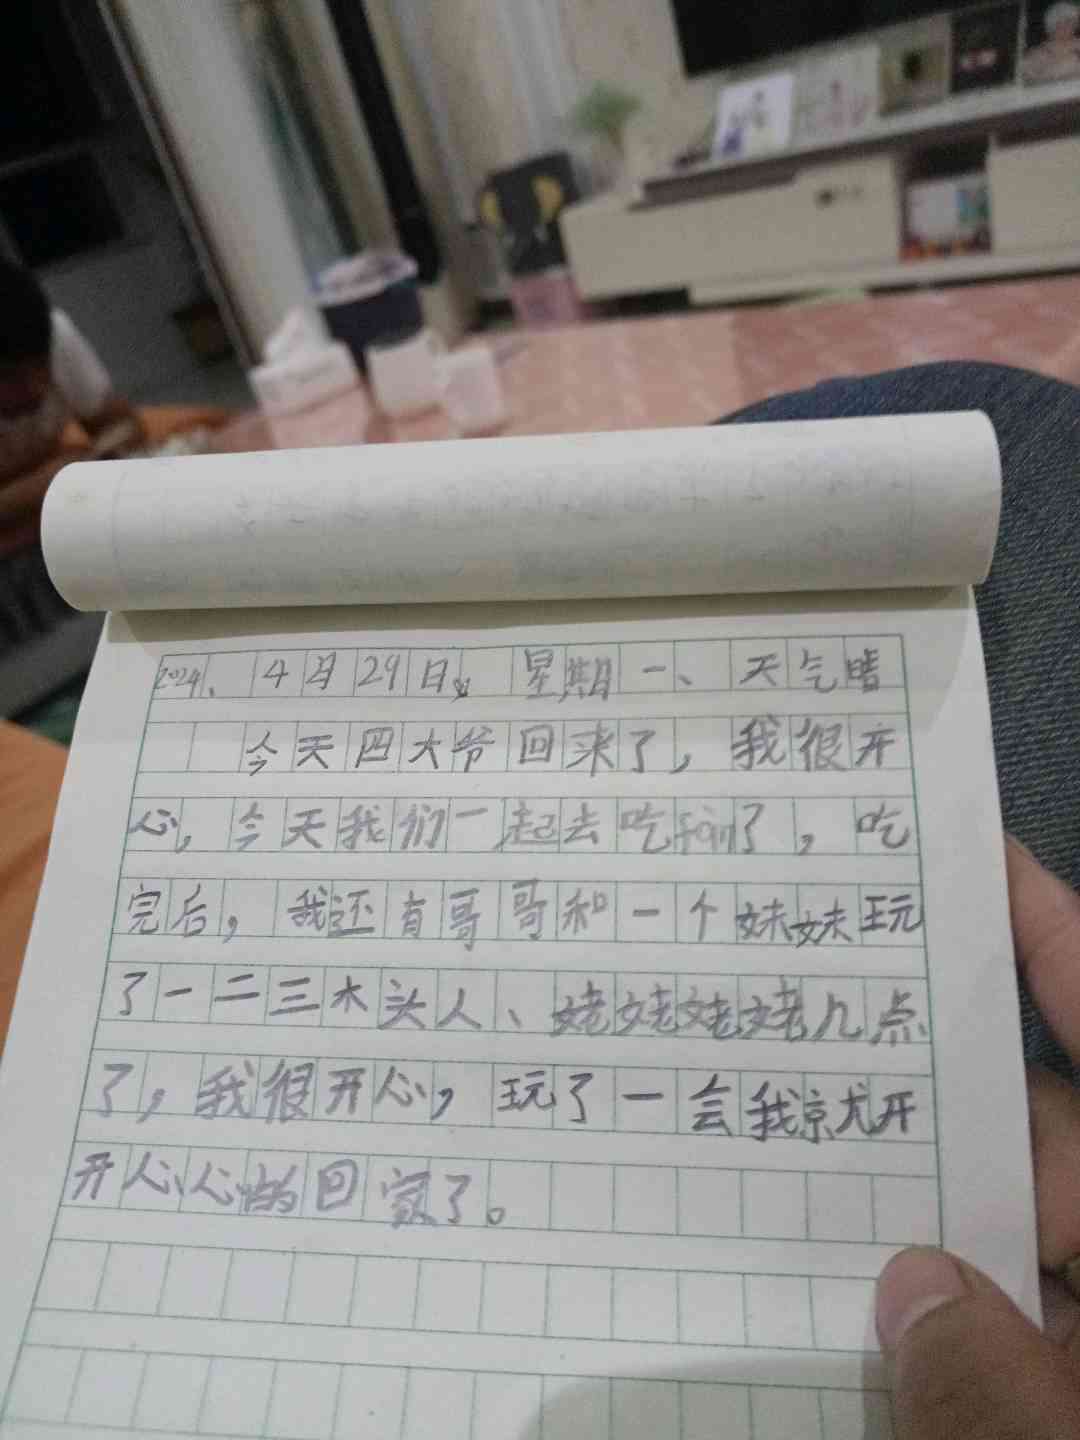 2024、4月29日，星期一、天气晴
今天四大爷回来了，我很开
心，今天我们一起去吃fàn了，吃
完后，我还有哥哥和一个妹妹玩
了一二三木头人、姥姥姥姥几点
了，我很开心，玩了一会我就开
开心心的回家了。